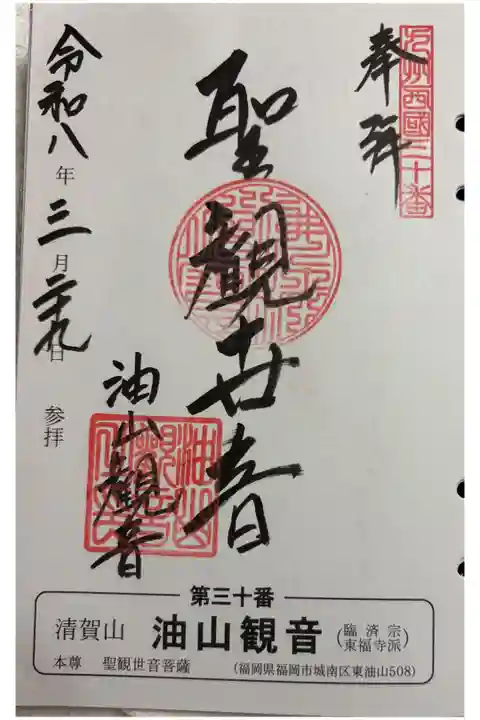 奉拜
九州西國三十番
聖観世音
油山観音
令和八年三月二十九日 参拝
第三十番
清賀山 油山観音 (臨済宗東福寺派)
本尊 聖観世音菩薩 (福岡県福岡市城南区東油山508)